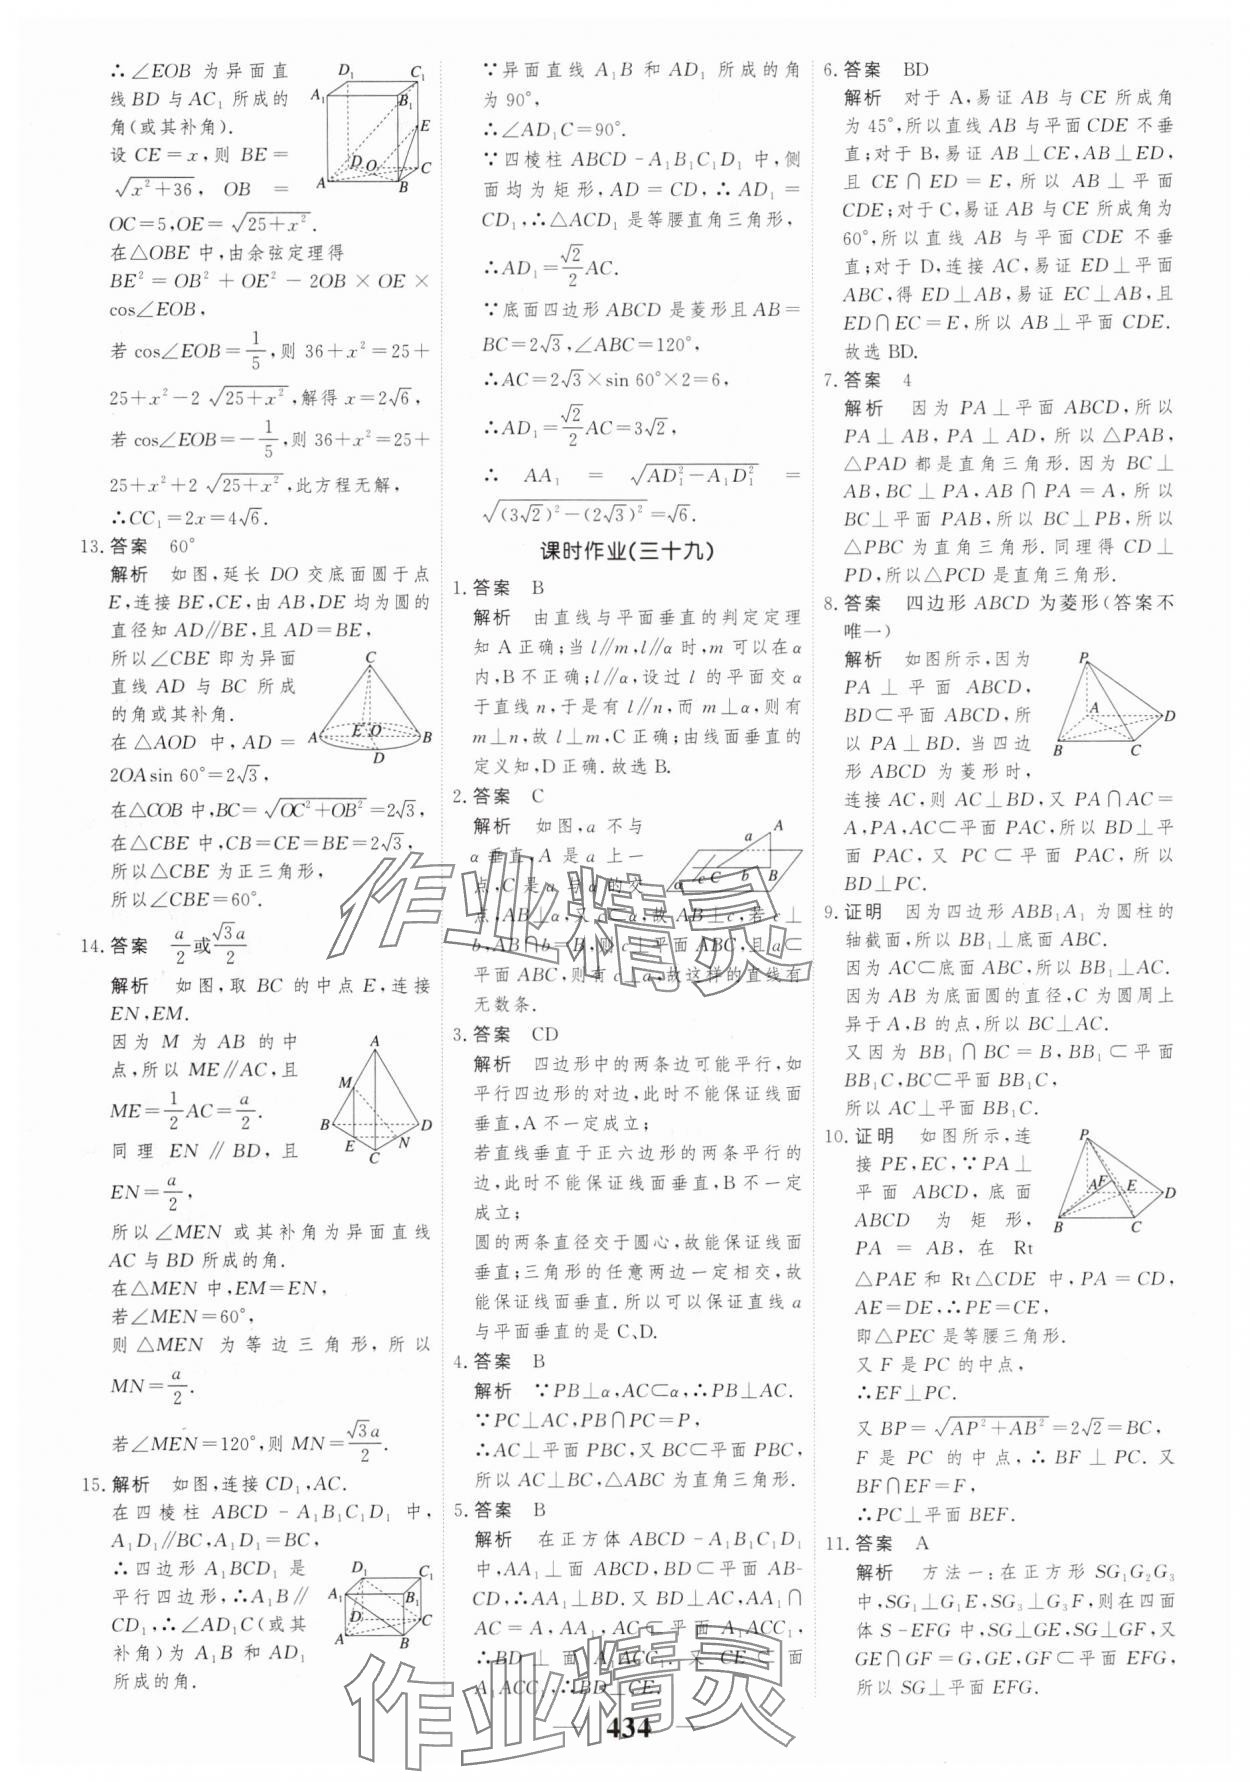 ∴∠EOB 为异面直
线BD 与AC₁ 所成的
角(或其补角).
设 CE=x,则 BE=
√(x²+36), OB =
OC=5,OE=√(25+x²).
在△OBE 中,由余弦定理得
BE²=OB²+OE²-2OB×OE×
cos∠EOB,
若 cos∠EOB=1/5,则 36+x²=25+
25+x²-2√(25+x²),解得 x=2√6,
若 cos∠EOB=-1/5,则 36+x²=25+
25+x²+2√(25+x²),此方程无解,
∴CC₁=2x=4√6.
13. 答案 60°
解析 如图,延长 DO 交底面圆于点
E,连接 BE,CE,由 AB,DE 均为圆的
直径知 AD∥BE,且 AD=BE,
所以∠CBE 即为异面
直线 AD 与 BC 所成
的角或其补角.
在△AOD 中,AD=
2OAsin 60°=2√3,
在△COB 中,BC=√(OC²+OB²)=2√3,
在△CBE 中,CB=CE=BE=2√3,
所以△CBE 为正三角形,
所以∠CBE=60°.
14. 答案 a/2或√3a/2
解析 如图,取 BC 的中点 E,连接
EN,EM.
因为 M 为 AB 的中
点,所以 ME∥AC,且
ME=1/2AC=a/2.
同理 EN∥BD,且
EN=a/2,
所以∠MEN 或其补角为异面直线
AC 与 BD 所成的角.
在△MEN 中,EM=EN,
若∠MEN=60°,
则△MEN 为等边三角形,所以
MN=a/2.
若∠MEN=120°,则 MN=√3a/2.
15. 解析 如图,连接 CD₁,AC.
在四棱柱 ABCD-A₁B₁C₁D₁ 中,
A₁D₁∥BC,A₁D₁=BC,
∴四边形 A₁BCD₁ 是
平行四边形,∴A₁B∥
CD₁,∴∠AD₁C(或其
补角)为 A₁B 和 AD₁
所成的角.
∵异面直线 A₁B 和 AD₁ 所成的角
为 90°,
∴∠AD₁C=90°.
∵四棱柱 ABCD-A₁B₁C₁D₁ 中,侧
面均为矩形,AD=CD,∴AD₁=
CD₁,∴△ACD₁ 是等腰直角三角形,
∴AD₁=√2/2AC.
∵底面四边形 ABCD 是菱形且 AB=
BC=2√3,∠ABC=120°,
∴AC=2√3×sin 60°×2=6,
∴AD₁=√2/2AC=3√2,
∴ AA₁ = √(AD₁²-A₁D₁²) =
√((3√2)²-(2√3)²)=√6.
课时作业(三十九)
1. 答案 B
解析 由直线与平面垂直的判定定理
知 A 正确;当 l∥m,l∥α 时,m 可以在 α
内,B 不正确;l∥α,设过 l 的平面交 α
于直线 n,于是有 l∥n,而 m⊥α,则有
m⊥n,故 l⊥m,C 正确;由线面垂直的
定义知,D 正确.故选 B.
2. 答案 C
解析 如图,a 不与
α 垂直,A 是 a 上一
点,C 是 a 与 α 的交
点,AB⊥α,又 c⊂α,故 AB⊥c,若 c⊥
b,AB∩b=B,则 c⊥平面 ABC,且 a⊂
平面 ABC,则有 c⊥a,故这样的直线有
无数条.
3. 答案 CD
解析 四边形中的两条边可能平行,如
平行四边形的对边,此时不能保证线面
垂直,A 不一定成立;
若直线垂直于正六边形的两条平行的
边,此时不能保证线面垂直,B 不一定
成立;
圆的两条直径交于圆心,故能保证线面
垂直;三角形的任意两边一定相交,故
能保证线面垂直.所以可以保证直线 a
与平面垂直的是 C、D.
4. 答案 B
解析 ∵PB⊥α,AC⊂α,∴PB⊥AC.
∵PC⊥AC,PB∩PC=P,
∴AC⊥平面 PBC,又 BC⊂平面 PBC,
所以 AC⊥BC,△ABC 为直角三角形.
5. 答案 B
解析 在正方体 ABCD-A₁B₁C₁D₁
中,AA₁⊥面 ABCD,BD⊂平面 AB-
CD,∴AA₁⊥BD.又 BD⊥AC,AA₁∩
AC=A,AA₁,AC⊂平面 A₁ACC₁,
∴BD⊥面 A₁ACC₁.又 CE⊂面
A₁ACC₁,∴BD⊥CE.
6. 答案 BD
解析 对于 A,易证 AB 与 CE 所成角
为 45°,所以直线 AB 与平面 CDE 不垂
直;对于 B,易证 AB⊥CE,AB⊥ED,
且 CE∩ED=E,所以 AB⊥平面
CDE;对于C,易证 AB 与 CE 所成角为
60°,所以直线 AB 与平面 CDE 不垂
直;对于 D,连接 AC,易证 ED⊥平面
ABC,得 ED⊥AB,易证 EC⊥AB,且
ED∩EC=E,所以 AB⊥平面 CDE.
故选 BD.
7. 答案 4
解析 因为 PA⊥平面 ABCD,所以
PA⊥AB,PA⊥AD,所以△PAB,
△PAD 都是直角三角形.因为 BC⊥
AB,BC⊥PA,AB∩PA=A,所以
BC⊥平面 PAB,所以 BC⊥PB,所以
△PBC 为直角三角形.同理得 CD⊥
PD,所以△PCD 是直角三角形.
8. 答案 四边形 ABCD 为菱形(答案不
唯一)
解析 如图所示,因为
PA⊥平面 ABCD,
BD⊂平面 ABCD,所
以 PA⊥BD.当四边
形 ABCD 为菱形时,
连接 AC,则 AC⊥BD,又 PA∩AC=
A,PA,AC⊂平面 PAC,所以 BD⊥平
面 PAC,又 PC⊂平面 PAC,所以
BD⊥PC.
9. 证明 因为四边形 ABB₁A₁ 为圆柱的
轴截面,所以 BB₁⊥底面 ABC.
因为 AC⊂底面 ABC,所以 BB₁⊥AC.
因为 AB 为底面圆的直径,C 为圆周上
异于 A,B 的点,所以 BC⊥AC.
又因为 BB₁∩BC=B,BB₁⊂平面
BB₁C,BC⊂平面 BB₁C,
所以 AC⊥平面 BB₁C.
10. 证明 如图所示,连
接 PE,EC,∵PA⊥
平面 ABCD,底面
ABCD 为矩形,
PA = AB,在 Rt
△PAE 和 Rt△CDE 中,PA=CD,
AE=DE,∴PE=CE,
即△PEC 是等腰三角形.
又 F 是 PC 的中点,
∴EF⊥PC.
又 BP=√(AP²+AB²)=2√2=BC,
F 是 PC 的中点,∴BF⊥PC.又
BF∩EF=F,
∴PC⊥平面 BEF.
11. 答案 A
解析 方法一:在正方形 SG₁G₂G₃
中,SG₁⊥G₁E,SG₃⊥G₃F,则在四面
体 S-EFG 中,SG⊥GE,SG⊥GF,又
GE∩GF=G,GE,GF⊂平面 EFG,
所以 SG⊥平面 EFG.
434
作业精灵
作业精灵